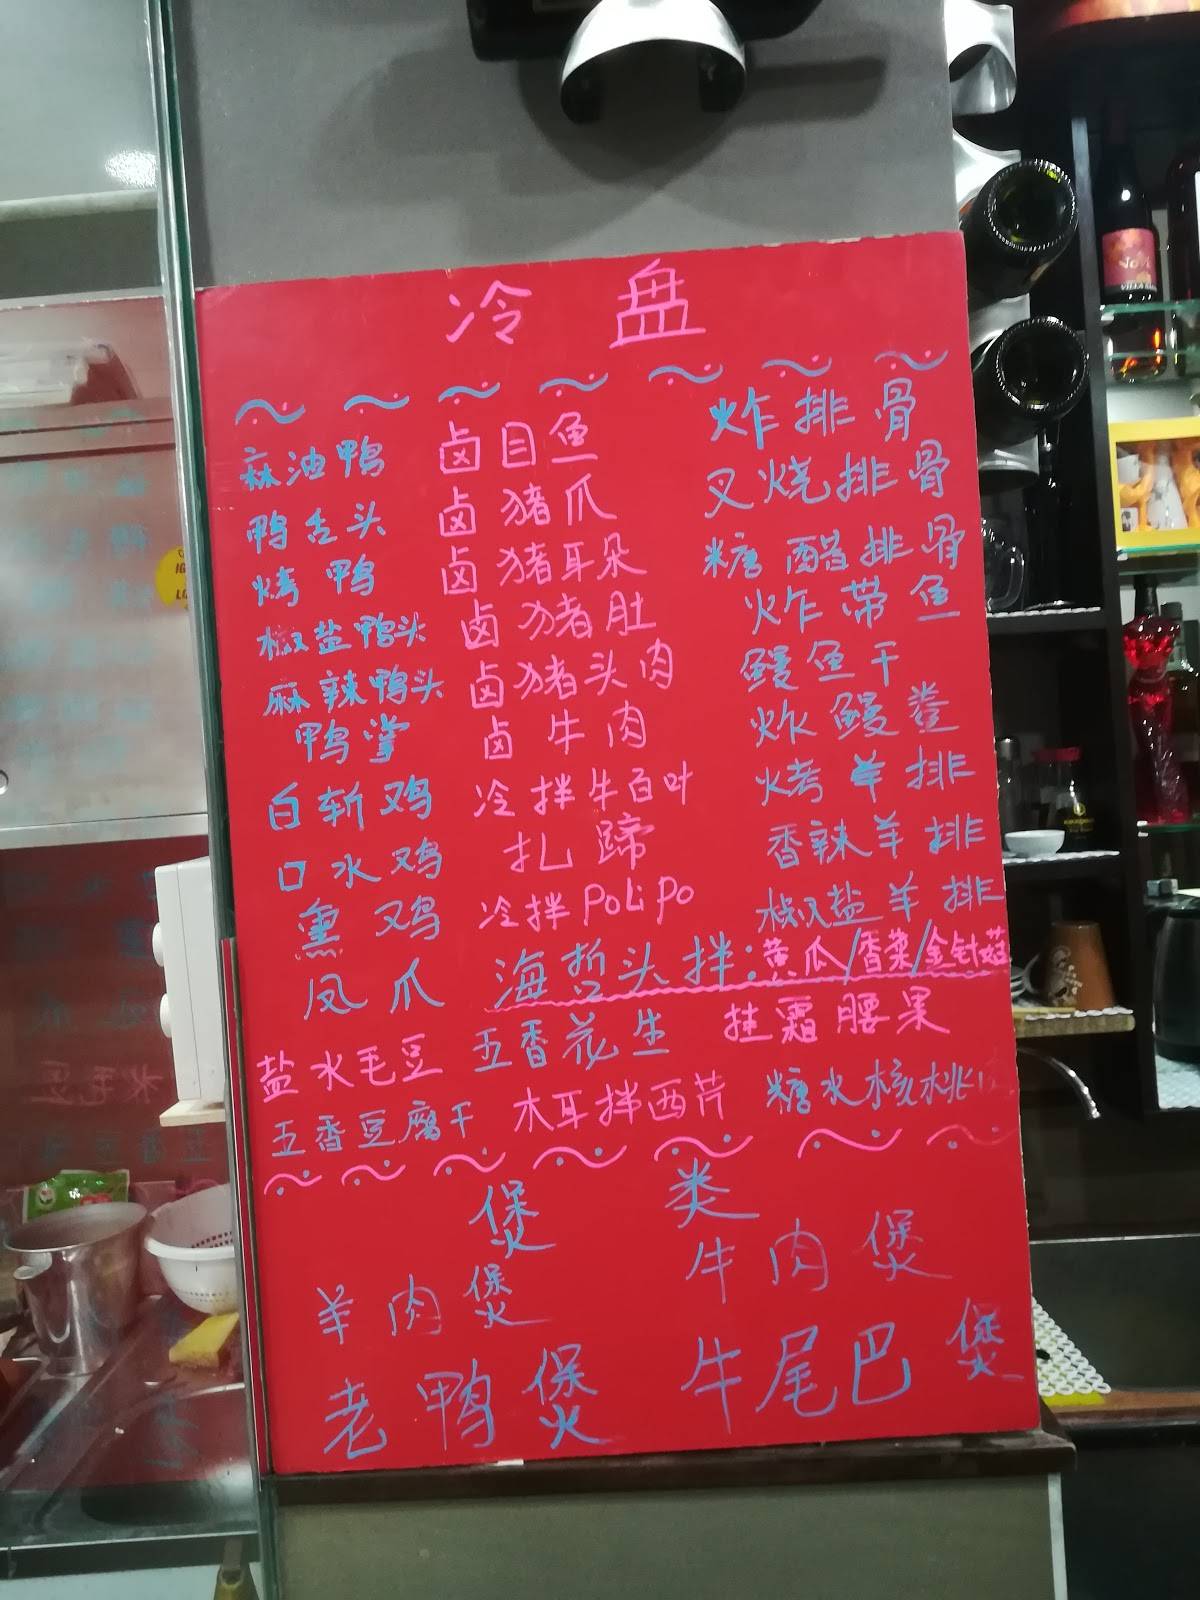 冷盘
麻油鸭 卤目鱼 炸排骨
鸭舌头 卤猪爪 叉烧排骨
烤鸭 卤猪耳朵 糖醋排骨
椒盐鸭头 卤猪肚 炸带鱼
麻辣鸭头 卤猪头肉 鳗鱼干
鸭掌 卤牛肉 炸鳗鲞
白斩鸡 冷拌牛百叶 烤羊排
口水鸡 扎蹄 香辣羊排
熏鸡 冷拌PoLiPo 椒盐羊排
凤爪 海哲头拌:黄瓜/香菜/金针菇
盐水毛豆 五香花生 挂霜腰果
五香豆腐干 木耳拌西芹 糖水核桃
煲类
羊肉煲 牛肉煲
老鸭煲 牛尾巴煲